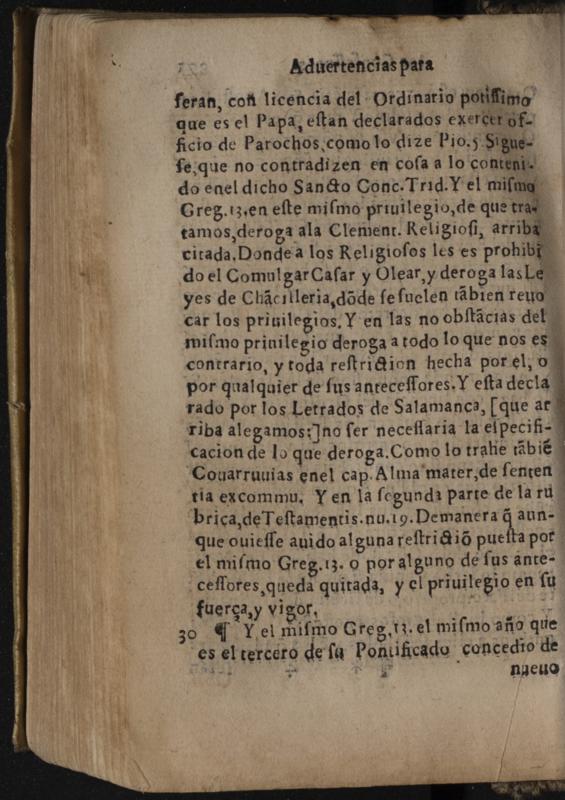 Aduertencias para
ſeran, con licencia del Ordinario potiſſimo
que es el Papa, eſtan declarados exercer of-
ficio de Parochos, como lo dize Pio. 5. Sigue-
ſe, que no contradizen en coſa a lo conteni-
do enel dicho Sancto Conc. Trid. Y el miſmo
Greg. 13. en eſte miſmo priuilegio, de que tra-
tamos, deroga ala Clement. Religioſi, arriba
citada. Donde a los Religioſos les es prohibi
do el Comulgar Caſar y Olear, y deroga las Le
yes de Chãcilleria, dõde ſe ſuelen tãbien reuo
car los priuilegios. Y en las no obſtãcias del
miſmo priuilegio deroga a todo lo que nos es
contrario, y toda reſtriction hecha por el, o
por qualquier de ſus anteceſſores. Y eſta decla
rado por los Letrados de Salamanca, [que ar
riba alegamos:] no ſer neceſſaria la eſpecifi-
cacion de lo que deroga. Como lo trahe tãbiẽ
Couarruuias enel cap. Alma mater, de ſenten
tia excommu. Y en la ſegunda parte de la ru
brica, de Teſtamentis. nu. 19. Demanera q̃ aun-
que ouieſſe auido alguna reſtrictiõ pueſta por
el miſmo Greg. 13. o por alguno de ſus ante-
ceſſores, queda quitada, y el priuilegio en ſu
fuerça, y vigor.
30 ¶ Y el miſmo Greg. 13. el miſmo año que
es el tercero de ſu Pontificado concedio de
nueuo